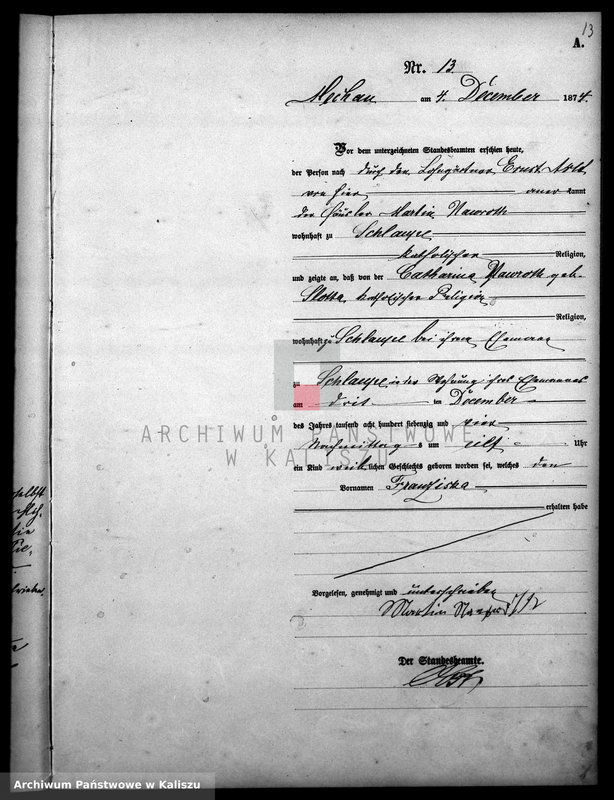 13
A.
Nr. 13
Mechau am 4. December 1874.
Vor dem unterzeichneten Standesbeamten erschien heute,
der Person nach durch den Ernst
von hier anerkannt
der Häusler Martin Nawroth
wohnhaft zu Schlaupe
katholischer Religion,
und zeigte an, daß von der Catharina Nawroth geb.
Slotta, katholischer Religion
Religion,
wohnhaft zu Schlaupe bei ihrem Ehemann
zu Schlaupe in der Wohnung ihres Ehemannes
am ten December
des Jahres tausend acht hundert siebenzig und vier
Nachmittags um elf Uhr
ein Kind weiblichen Geschlechts geboren worden sei, welches den
Vornamen Franziska
erhalten habe
Vorgelesen, genehmigt und unterschrieben
Martin
Der Standesbeamte.
ARCHIWUM PAŃSTWOWE
W KALISZU
Archiwum Państwowe w Kaliszu